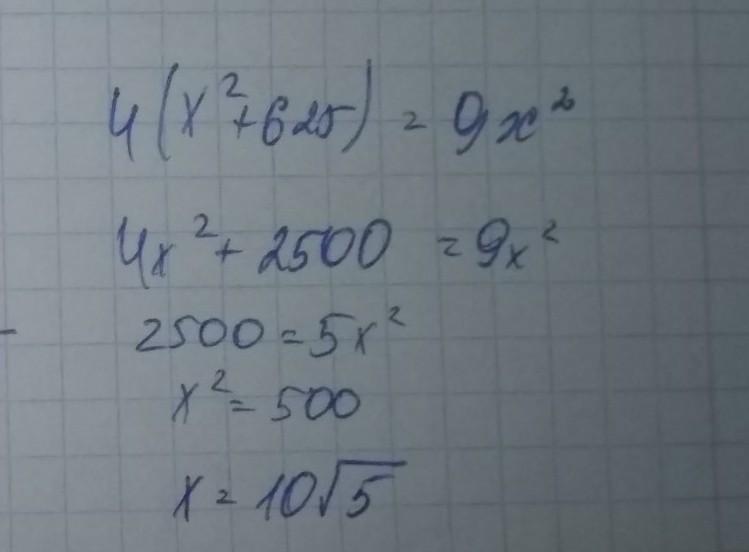 4(x²+625) = 9x²
4x² + 2500 = 9x²
2500 = 5x²
x² = 500
x = 10√5